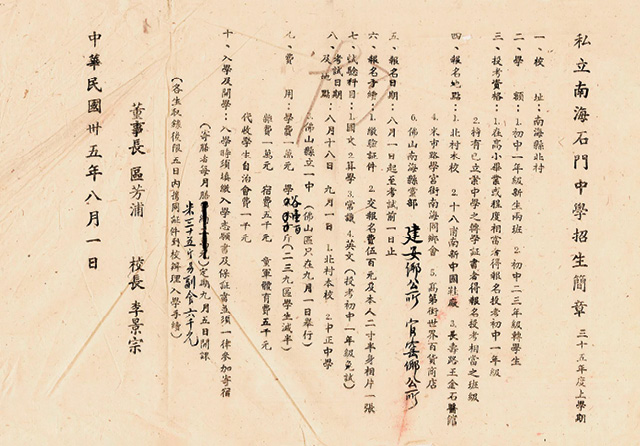 私立南海石門中學招生簡章 三十五年度上學期
一、校 址：南海縣北村
二、學 額：1.初中一年級新生兩班 2.初中二三年級轉學生
三、投考資格：1.在高小畢業或程度相當者得報名投考初中一年級
2.持有已立案中學之轉學證書者得報名投考相當之班級
四、報名地點：1.北村本校 2.十八甫南新中國鞋廠 3.長壽路王金石醫館
4.米市路學宮街南海同鄉會 5.高第街世界百貨商店
6.佛山南海縣黨部 建安鄉公所 官窰鄉公所
五、報名日期：八月一日起至考試前一日止
六、報名手續：1.繳驗証件 2.交報名費伍百元及本人二寸半身相片一張
七、試驗科目：1.國文 2.算學 3.常識 4.英文（投考初中一年級免試）
八、考試日期及地點：八月十八日 九月一日 1.北村本校 2.中正中學
3.佛山縣立一中（佛山區只在九月一日舉行）
九、費 用：學費一萬元 學 斤（二三九區學生減半）
雜費一萬元 宿費五千元 童軍體育費五千元
代收學生自治會費一千元
十、入學及開學：入學時須填繳入學志願書及保証書並須一律參加寄宿
（寄膳者每月膳 定期九月五日開課
米三十五斤另副食六千元
（各生取錄後限五日內攜同証件到校辦理入學手續）
董事長 區芳浦 校長 李景宗
中華民國卅五年八月一日